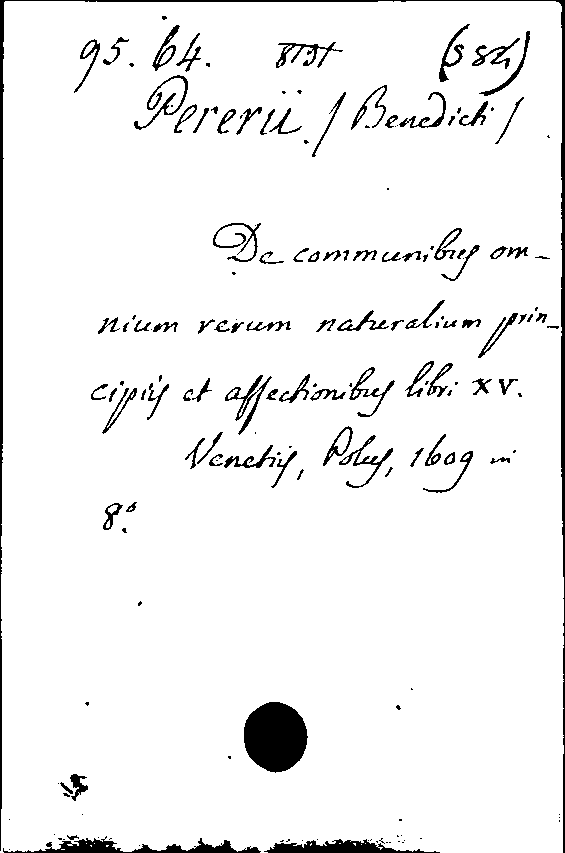 95. 64. (S S h)
Pererii. / Benedicti /
De communibus om-
nium rerum naturalium prin-
cipiis et affectionibus libri XV.
Venetiis, Polus, 1609 in
8.°